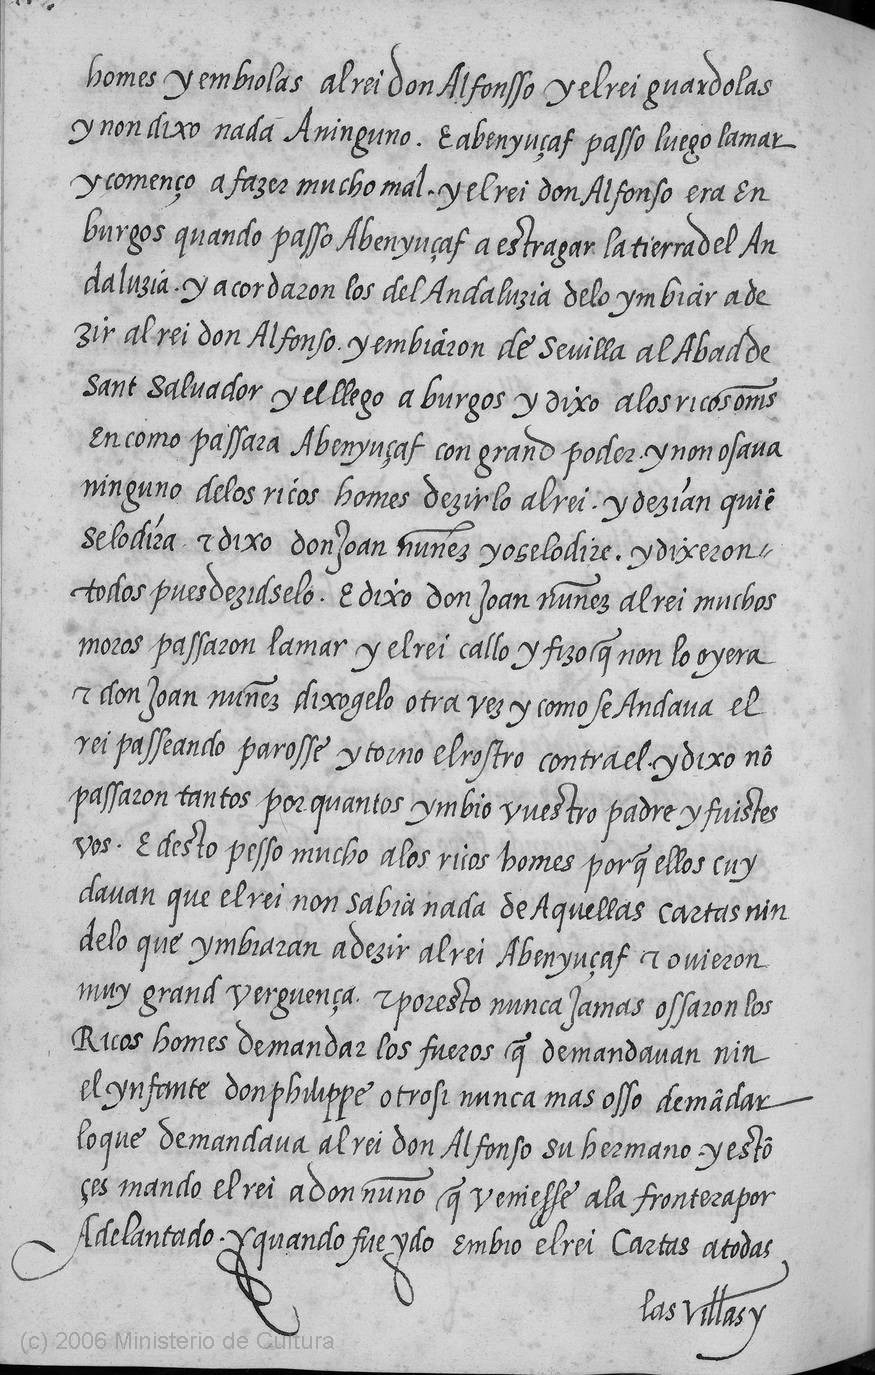 homes y embiolas al rei don Alfonsso y el rei guardolas
y non dixo nada A ninguno. E abenyuçaf passo luego la mar
y començo a fazer mucho mal. y el rei don Alfonso era En
burgos quando passo Abenyuçaf a estragar la tierra del An
daluzia. y acordaron los del Andaluzia delo ymbiar a de
zir al rei don Alfonso. y embiaron de Sevilla al Abad de
Sant Salvador y el llego a burgos y dixo a los ricos oms̃
En como passara Abenyuçaf con grand poder. y non osava
ninguno delos ricos homes dezirlo al rei. y dezian quiẽ
selo dira. ⁊ dixo don Joan nuñez yo gelo dire. y dixeron
todos pues dezidselo. E dixo don Joan nuñez al rei muchos
moros passaron la mar y el rei callo y fizo q̃ non lo oyera
⁊ don Joan nuñez dixogelo otra vez y como se Andava el
rei passeando parosse y torno el rostro contra el. y dixo nõ
passaron tantos por quantos ymbio vuestro padre y fuistes
vos. E desto pesso mucho a los ricos homes porq̃ ellos cuy
davan que el rei non sabia nada de Aquellas cartas nin
delo que ymbiaran a dezir al rei Abenyuçaf ⁊ ovieron
muy grand verguença. ⁊ por esto nunca Jamas ossaron los
Ricos homes demandar los fueros q̃ demandavan nin
el ynfante don philippe otrosi nunca mas osso demãdar
lo que demandava al rei don Alfonso su hermano. y estõ
çes mando el rei a don nuño q̃ veniesse a la frontera por
Adelantado. y quando fue ydo Embio el rei Cartas a todas
las Villas y
(c) 2006 Ministerio de Cultura